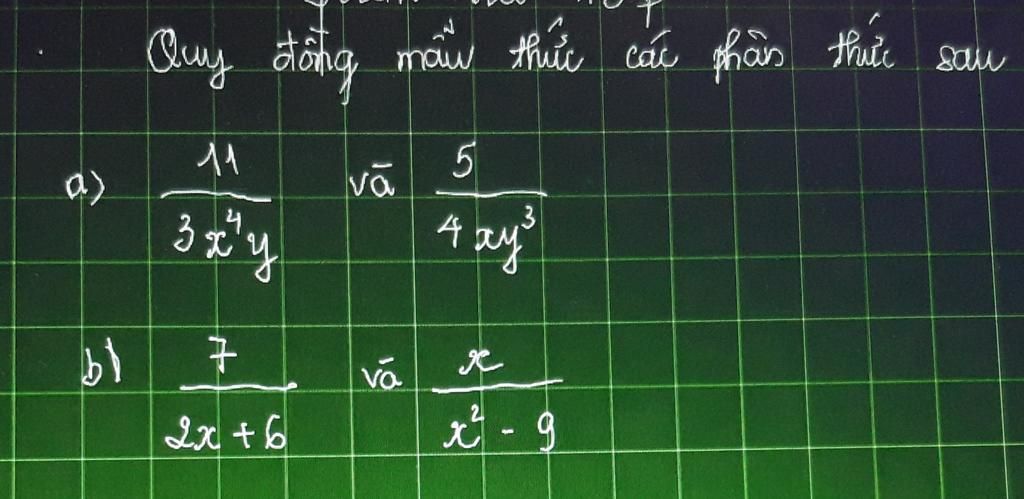 Quy đồng mẫu thức các phân thức sau
a) 11/(3x⁴y) và 5/(4xy³)
b) 7/(2x + 6) và x/(x² - 9)